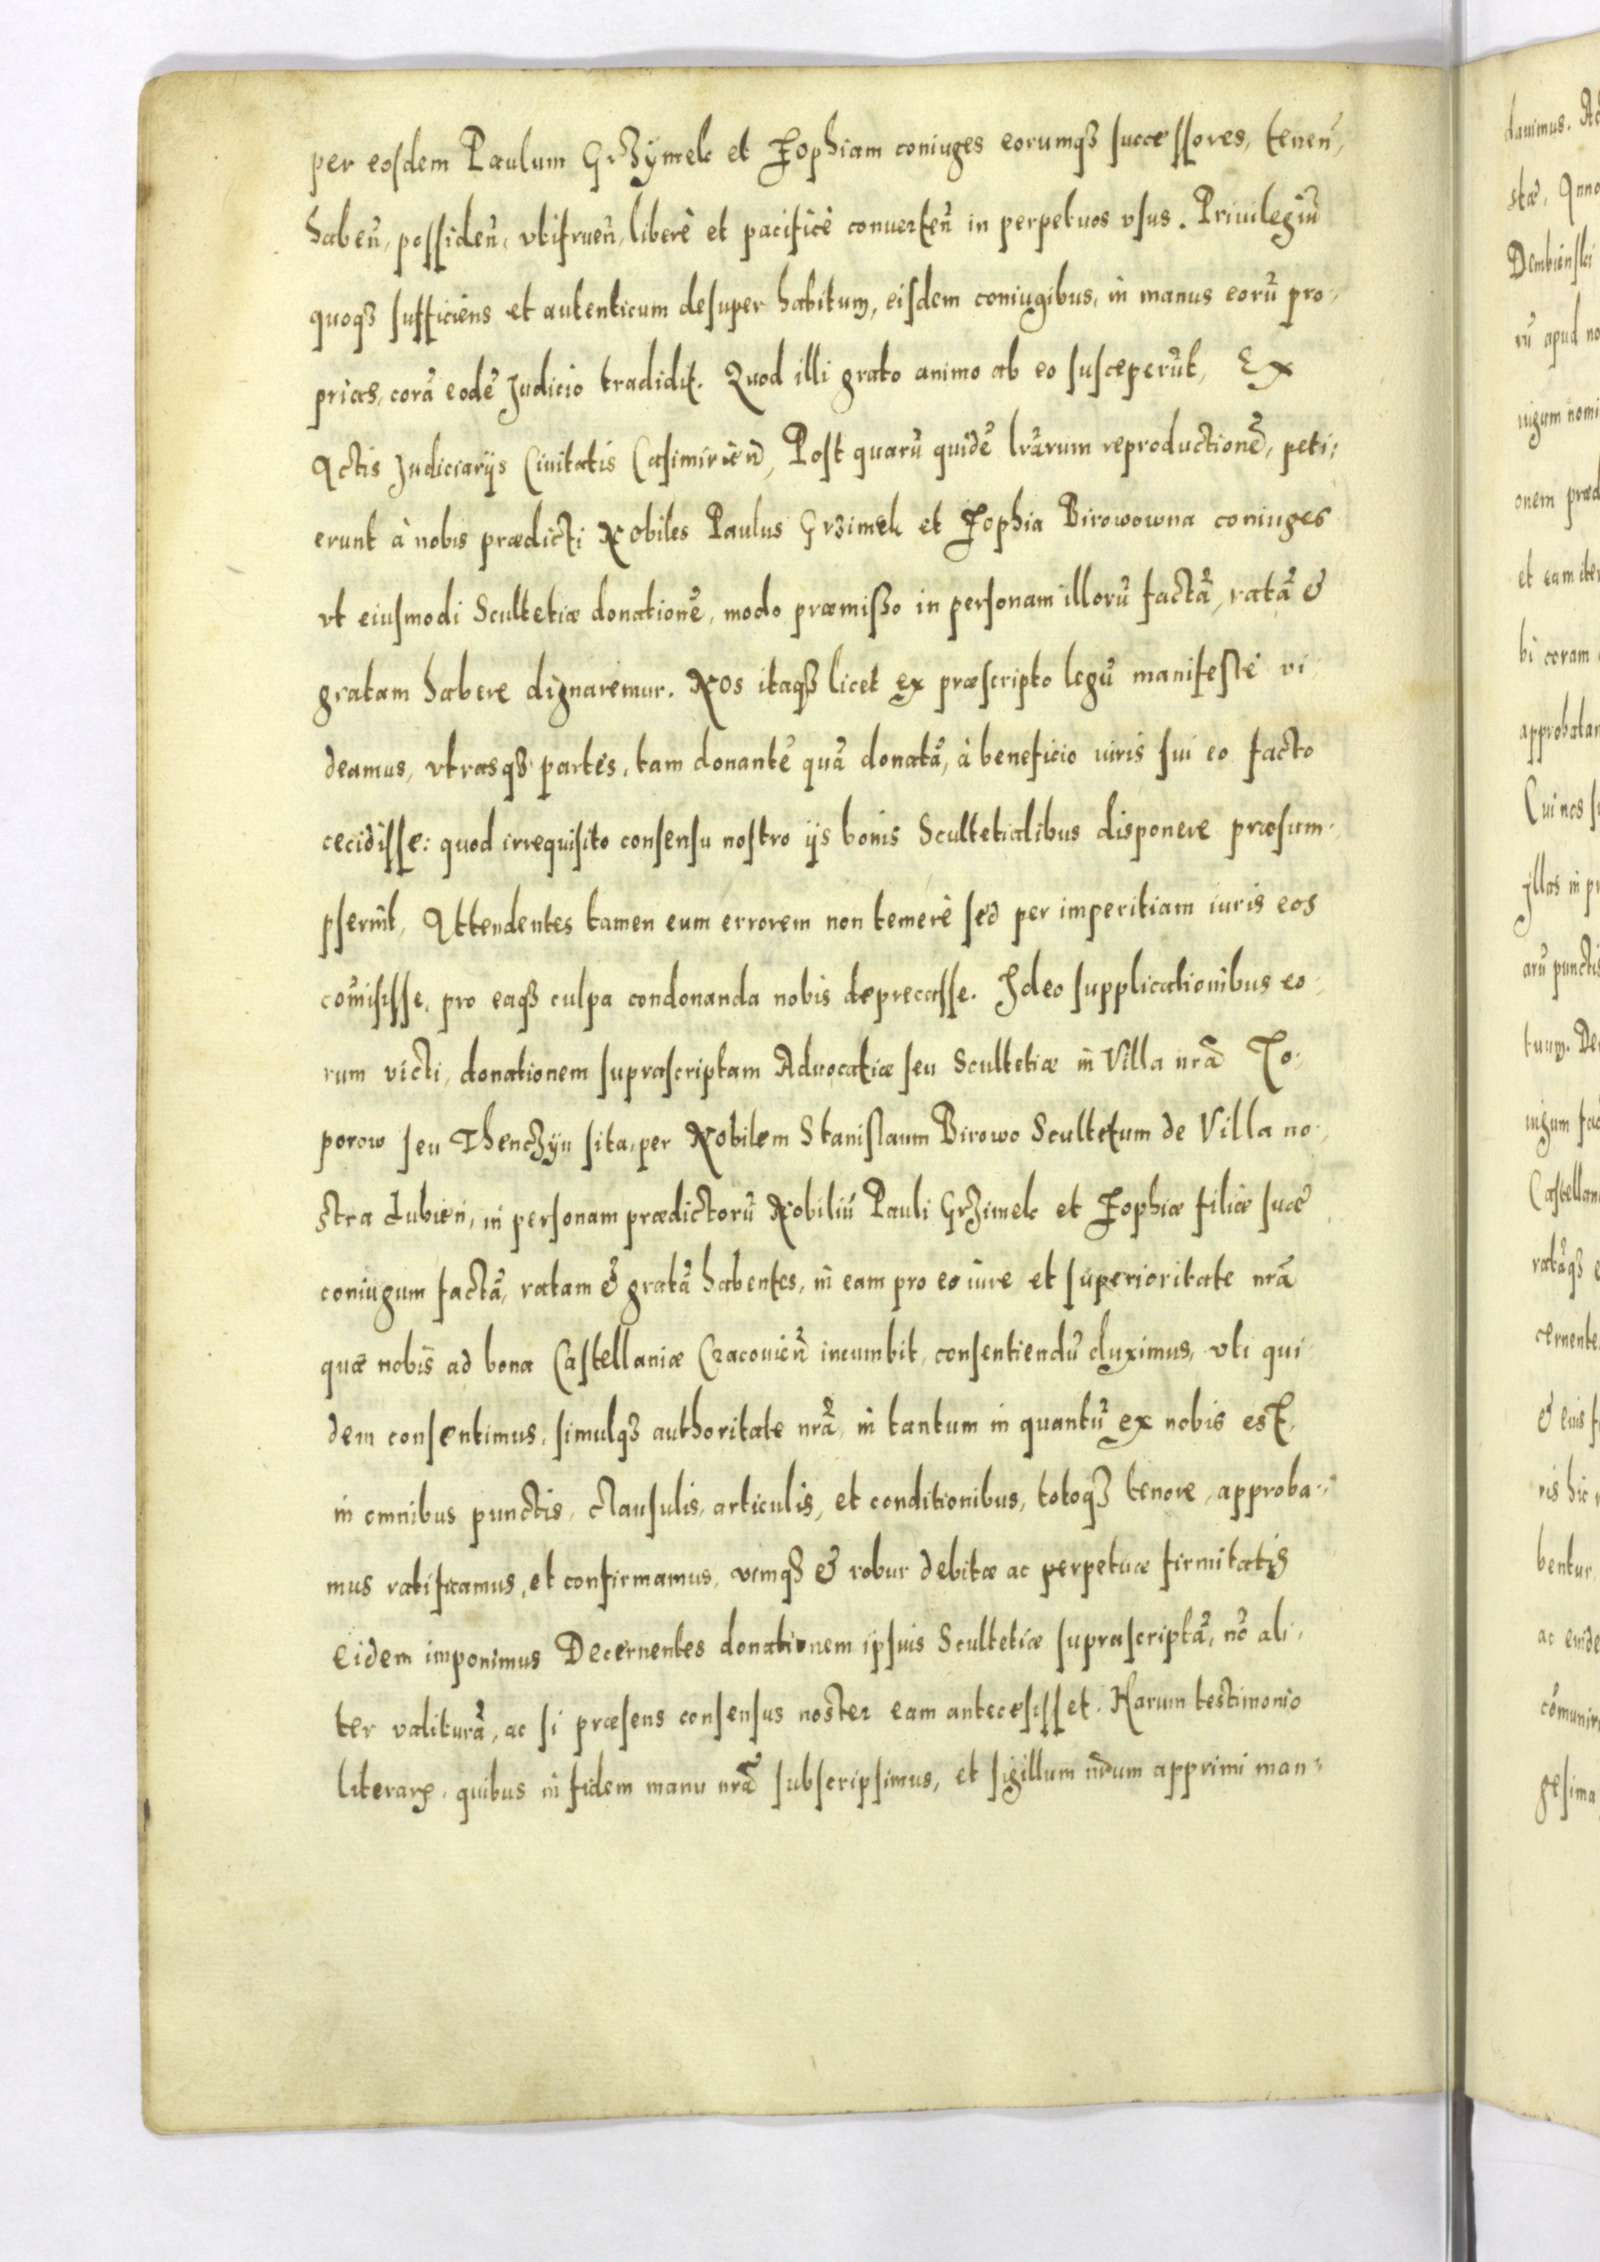 per eosdem Paulum Grzymek et Zophiam coniuges eorumqȝ successores, tenen̄,
haben̄, possiden̄, vtifruen̄, liberè et pacificè conuerten̄ in perpetuos vsus. Priuilegiū
quoqȝ sufficiens et autenticum desuper habitum, eisdem coniugibus, in manus eorū pro-
prias, corā eodē Judicio tradidit. Quod illi grato animo ab eo susceperūt, Ex
Actis Judiciarijs Ciuitatis Casimirien̄, Post quarū quidē lrārum reproductionē, peti-
erunt à nobis prædicti Nobiles Paulus Grzimek et Zophia Birowowna coniuges
vt eiusmodi Scultetiæ donationē, modo præmisso in personam illorū factā, ratā &
gratam habere dignaremur. Nos itaqȝ licet ex præscripto legū manifestè vi-
deamus, vtrasqȝ partes, tam donantē quā donatā, à beneficio iuris sui eo facto
cecidisse: quod irrequisito consensu nostro ijs bonis Scultetialibus disponere præsum-
pserint, Attendentes tamen eum errorem non temerè sed per imperitiam iuris eos
com̄isisse, pro eaqȝ culpa condonanda nobis deprecasse. Ideo supplicationibus eo-
rum victi, donationem suprascriptam Aduocatiæ seu Scultetiæ in Villa nrā To-
porow seu Thenczyn sita, per Nobilem Stanislaum Birowo Scultetum de Villa no-
stra Lubien, in personam prædictorū Nobiliū Pauli Grzimek et Zophiæ filiæ suæ
coniugum factā, ratam & gratā habentes, in eam pro eo iure et superioritate nrā
quæ nobis ad bona Castellaniæ Cracouien̄ incumbit, consentiendū duximus, vti qui-
dem consentimus, simulqȝ authoritate nrā, in tantum in quantū ex nobis est,
in omnibus punctis, clausulis, articulis, et conditionibus, totoqȝ tenore, approba-
mus ratificamus, et confirmamus, vimqȝ & robur debitæ ac perpetuæ firmitatis
eidem imponimus Decernentes donationem ipsius Scultetiæ suprascriptā, nō ali-
ter valiturā, ac si præsens consensus noster eam antecessisset. Harum testimonio
literarꝝ, quibus in fidem manu nrā subscripsimus, et sigillum nrūm apprimi man-
dauimus. Ac
stæ, Anno
Dembienski
rū apud no
iugum nomi
onem præd
et eam iter
bi coram
approbatam
Cui nos su
illas in pr
arū punctis
tuum. De
iugum fac
Castellan
ratāqȝ e
cernente
& eius f
ris hic
bentur.
ac euide
com̄unir
gesima